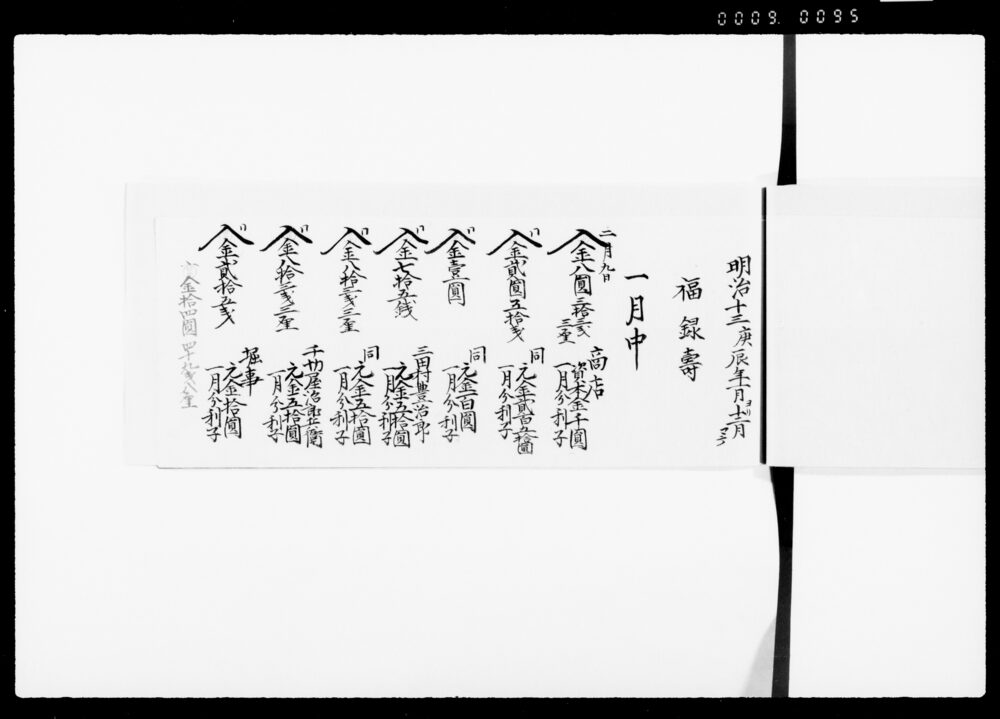 0009. 0095
明治十三庚辰年一月ヨリ十二月マテ
福録壽
一月中
二月九日
入 金八圓三拾三戋三厘
商店
資本金千圓
一月分利子
入 金貳圓五拾戋
同
元金貳百五拾圓
一月分利子
入 金壹圓
同
元金百圓
一月分利子
入 金七拾五銭
三田村豊治郎
元金五拾圓
一月分利子
入 金八拾三戋三厘
同
元金五拾圓
一月分利子
入 金八拾三戋三厘
千切屋治郎兵衛
元金五拾圓
一月分利子
入 金貳拾五戋
堀事
元金拾圓
一月分利子
金拾四圓四十九戋八厘